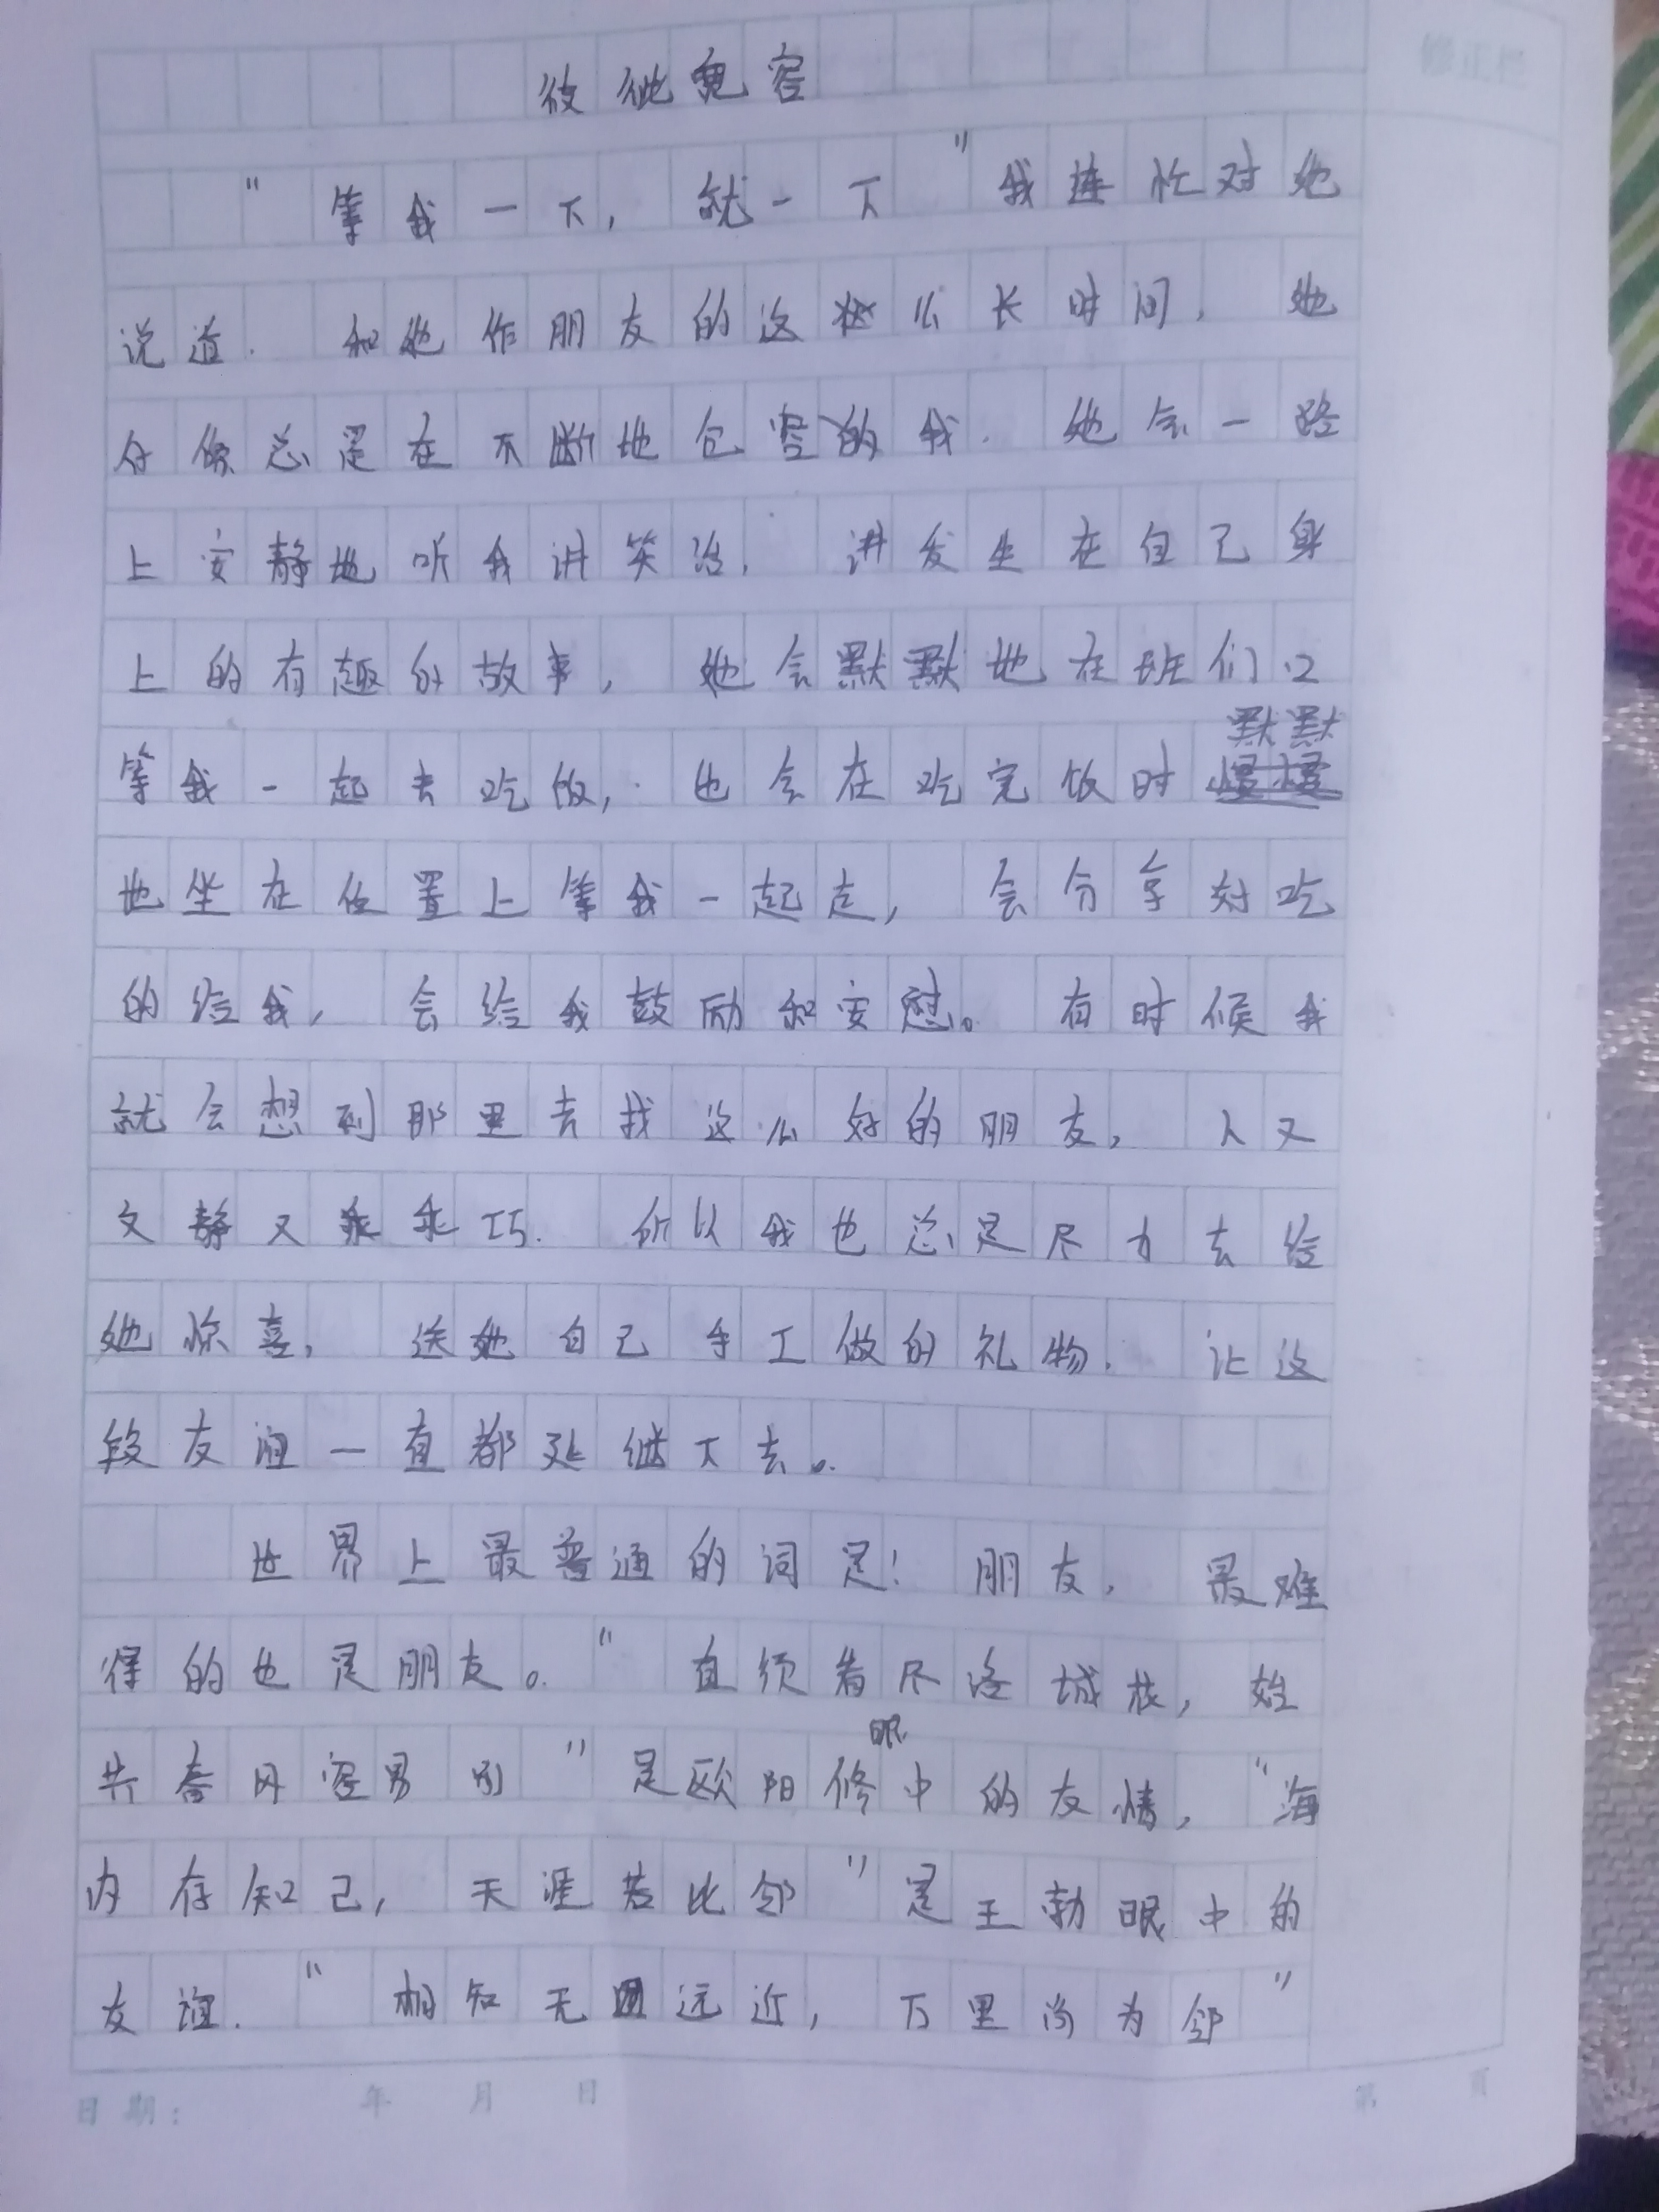 修正栏
彼此宽容
“等我一下，就一下”我连忙对她
说道.和她作朋友的这么长时间，她
好像总是在不断地包容的我.她会一路
上安静地听我讲笑话，讲发生在自己身
上的有趣的故事，她会默默地在班们口
等我一起去吃饭，也会在吃完饭时默默
地坐在位置上等我一起走，会分享好吃
的给我，会给我鼓励和安慰。有时候我
就会想到那里去找这么好的朋友，人又
文静又乖乖巧.所以我也总是尽力去给
她惊喜，送她自己手工做的礼物.让这
段友谊一直都延继下去。
世界上最普通的词是！朋友，最难
得的也是朋友。“直须看尽洛城花，始
共春风容易别”是欧阳修眼中的友情，“海
内存知己，天涯若比邻”是王勃眼中的
友谊.“相知无远近，万里尚为邻”
日期： 年 月 日 第 页